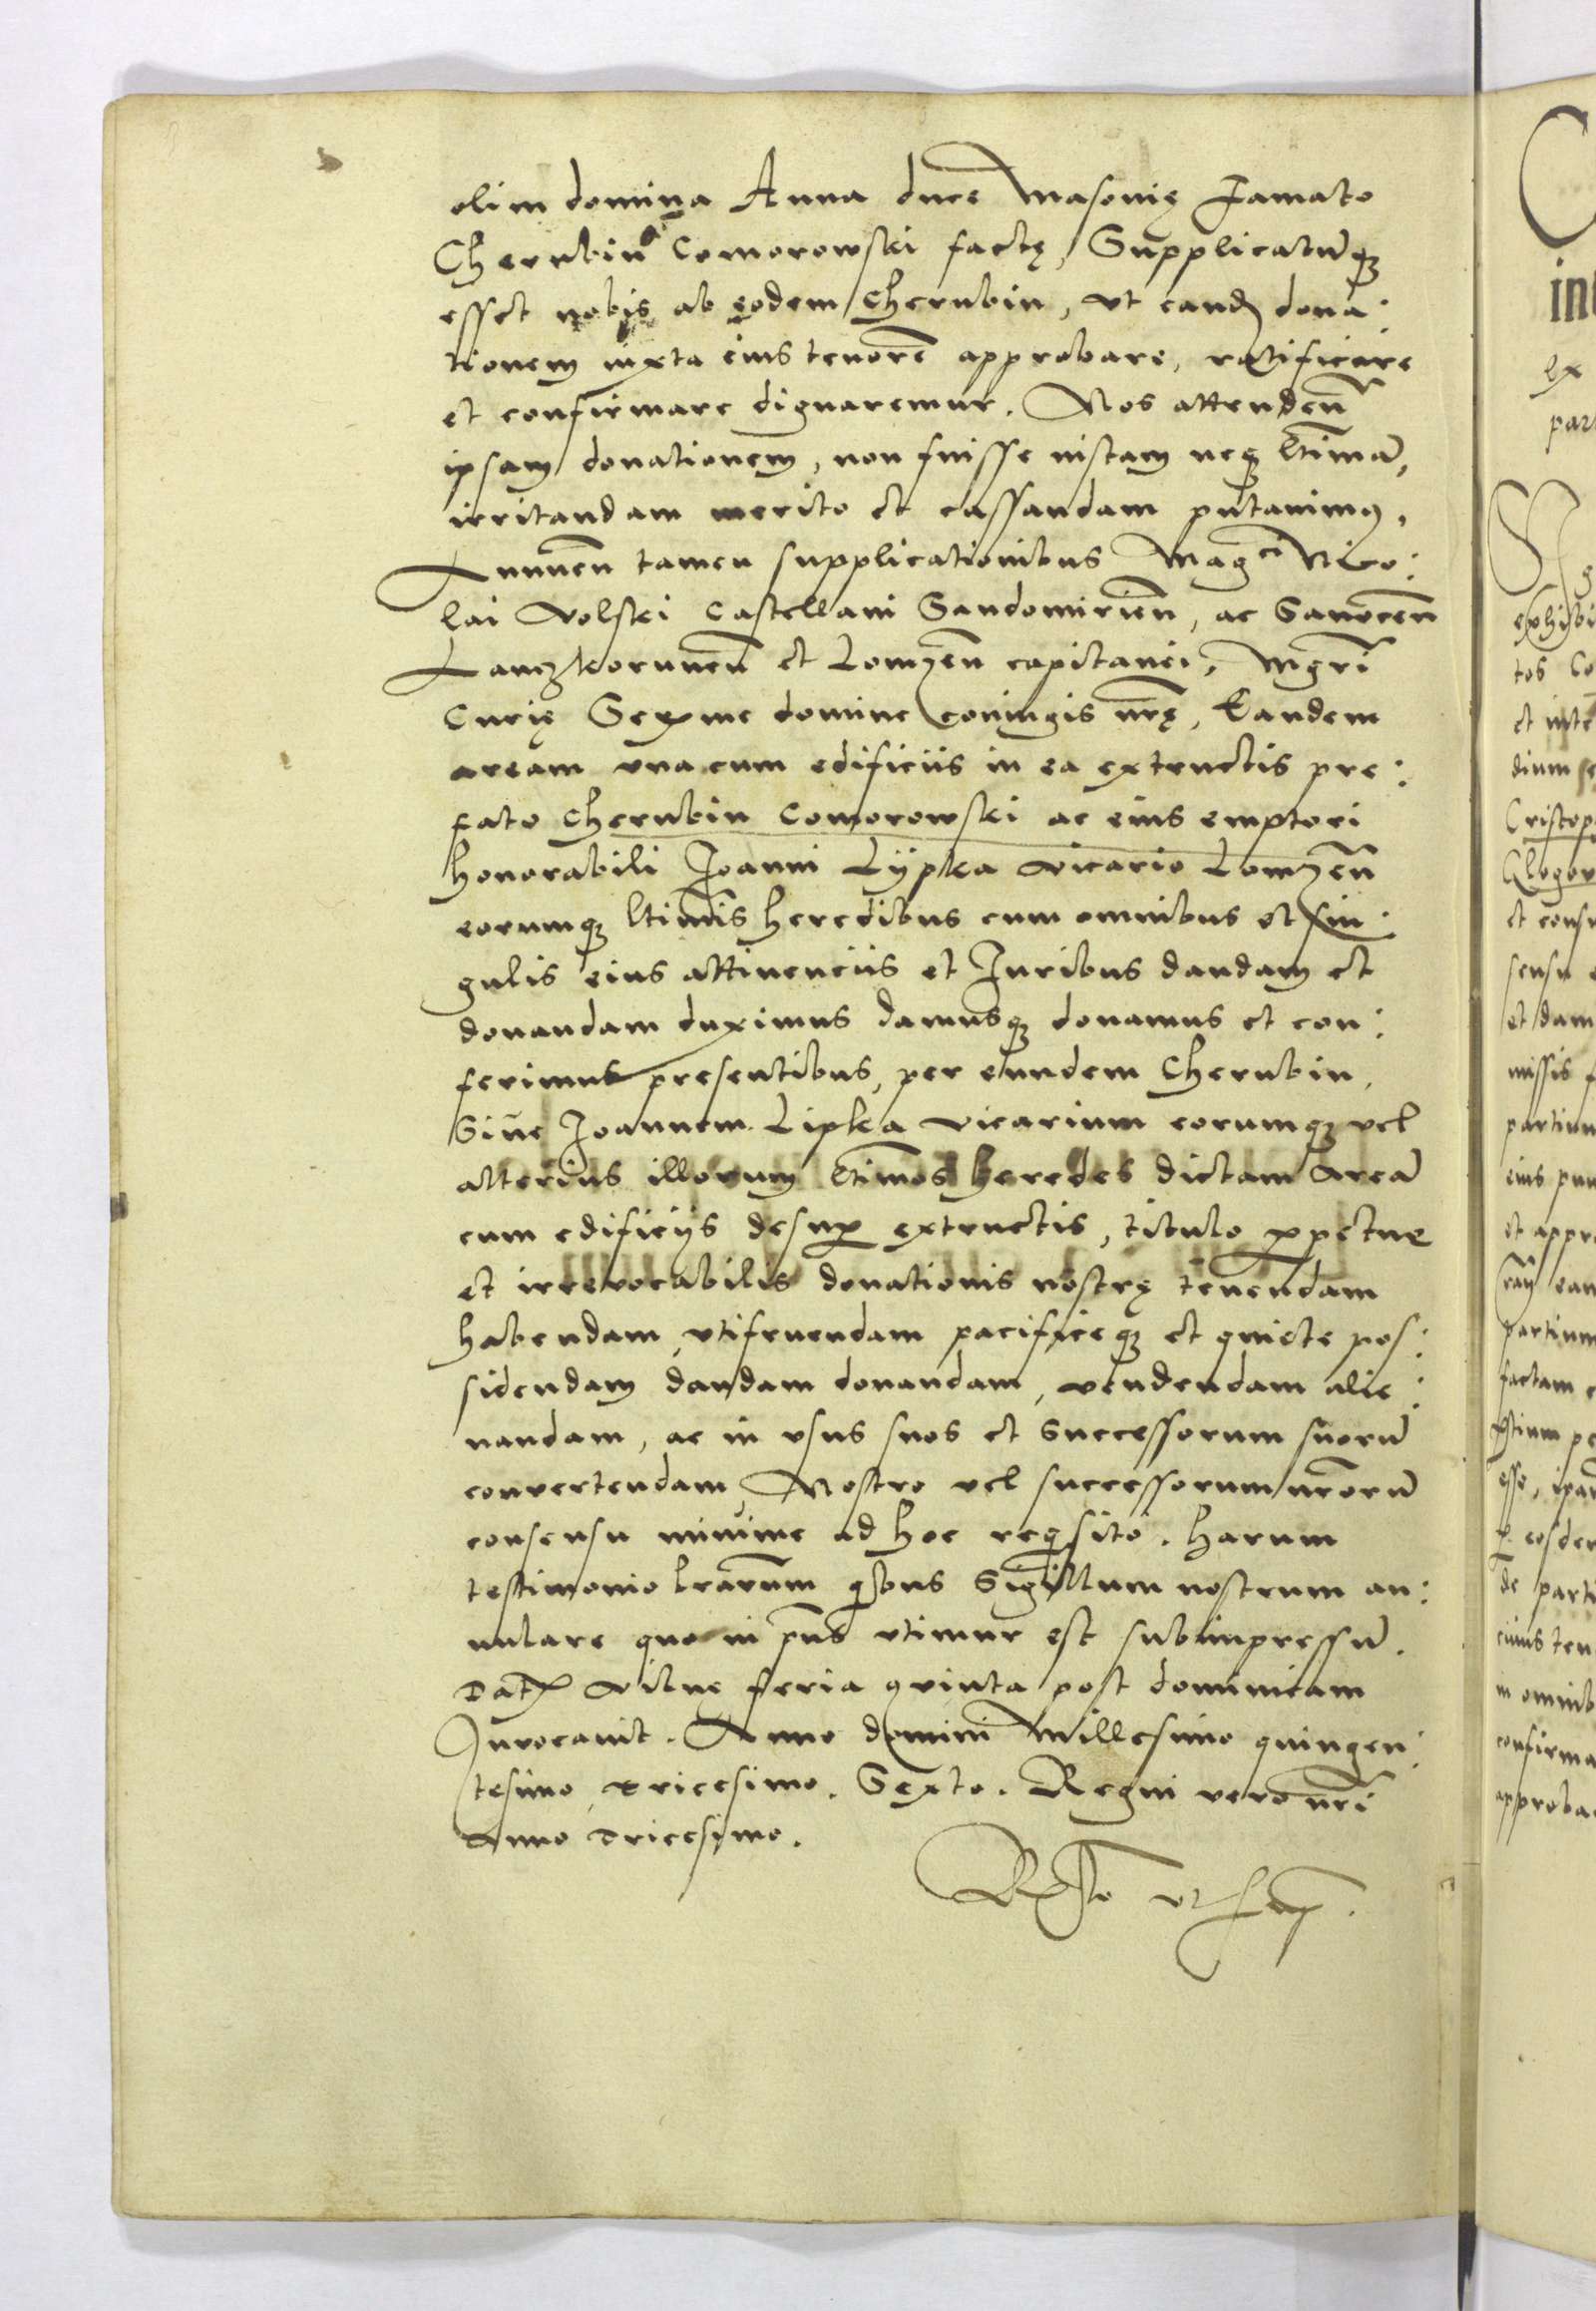 olim domina Anna duce Masovię Famato
Cherubin Comorowski factę, Supplicatūq₃
esset nobis ab eodem Cherubin, ut eand dona:
tionem iuxta eius tenorē approbare, ratificare
et confirmare dignaremur. Nos attendeñ
ipsam donationem, non fuisse iustam neq ltimā,
irritandam merito et cassandam putavimꝰ,
Annueñ tamen supplicationibus Magci Nico:
lai Volski Castellani Sandomirieñ, ac Sanoceñ
Lanczkoruneñ et Lomzeñ capitanei, Mgrī
Curię Serme domine coniugis nrę, Eandem
aream una cum edificiis in ea extructis pre:
fato Cherubin Comorowski ac eius emptori
honorabili Joanni Lÿpka vicario Lomzeñ
eorumq₃ ltimis heredibus cum omnibus et sin:
gulis eius attinenciis et Juribus dandam et
donandam duximus damusq₃ donamus et con:
ferimus presentibus, per eundem Cherubin,
Sive Joannem Lipka vicarium eorumq₃ vel
alterius illorum ltimos heredes dictam areā
cum edificijs desuꝑ extructis, titulo ꝑpetue
et irrevocabilis donationis nostrę tenendam
habendam, utifruendam pacificeq₃ et quiete pos:
sidendam dandam donandam, vendendam alie:
nandam, ac in usus suos et successorum suorū
convertendam, Nostro vel successorum nrorū
consensu minime ad hoc reqsito. Harum
testimonio lrarum qbus Sigillum nostrum an:
nulare quo in pns utimur est subimpressū.
Dat Vilne feria quinta post dominicam
Invocavit. Anno domini Millesimo quingen:
tesimo, tricesimo. Sexto. Regni vero nri
Anno Tricesimo.
Rlto ut sup.
in
ex
par
exhibi
tos Co
et inte
dium se
Cristop
Glogov
et conse
sensu
et dam
missis
partium
eius
et appro
eam
partium
factam
esse, ipam
eosdem
de parti
cuius ten
in omnib
confirma
approba